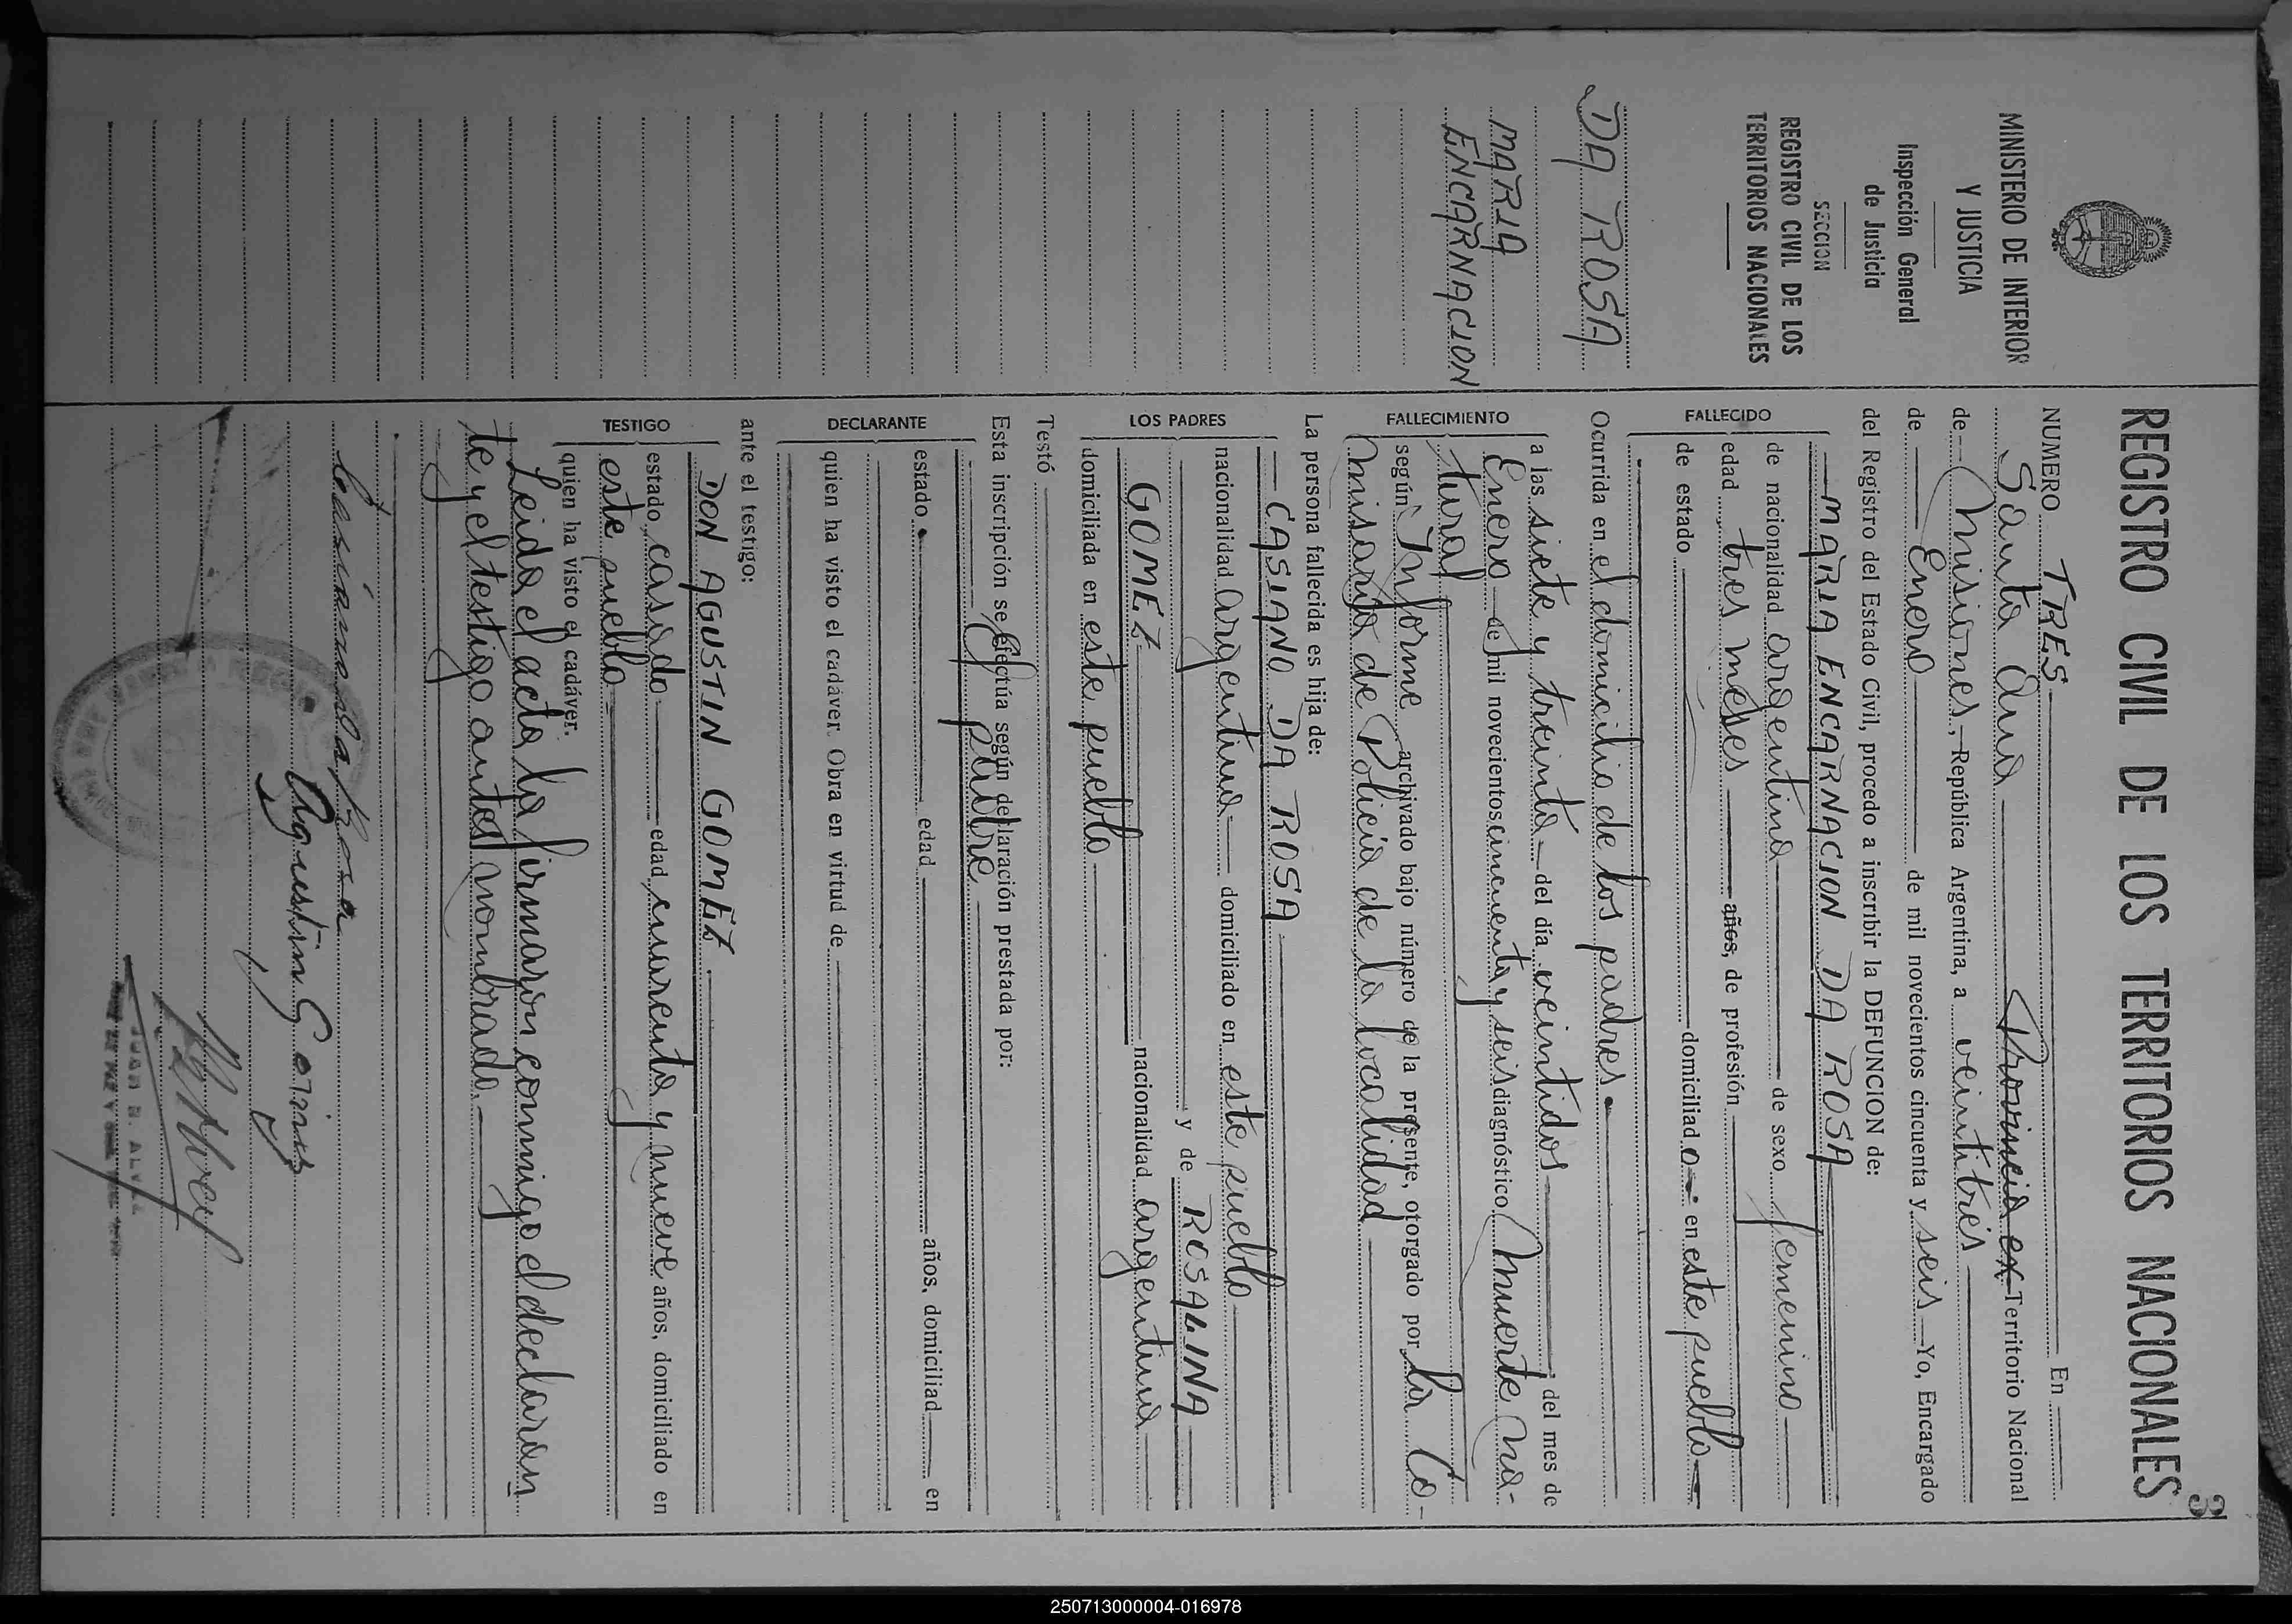 3
REGISTRO CIVIL DE LOS TERRITORIOS NACIONALES
MINISTERIO DE INTERIOR
Y JUSTICIA
Inspección General
de Justicia
SECCION
REGISTRO CIVIL DE LOS
TERRITORIOS NACIONALES
DA ROSA
MARIA
ENCARNACION
NUMERO TRES En
Santa Ana Provincia ex Territorio Nacional
de Misiones, República Argentina, a veintitrés
de Enero de mil novecientos cincuenta y seis Yo, Encargado
del Registro del Estado Civil, procedo a inscribir la DEFUNCION de:
FALLECIDO
MARIA ENCARNACION DA ROSA
de nacionalidad argentina de sexo femenino
edad tres meses años, de profesión
de estado domiciliado en este pueblo
Ocurrida en el domicilio de los padres
FALLECIMIENTO
a las siete y treinta del día veintidos del mes de
Enero de mil novecientos cincuenta y seis diagnóstico Muerte na-
tural
según Informe archivado bajo número de la presente, otorgado por la Co-
misaria de Policia de la localidad
La persona fallecida es hija de:
LOS PADRES
CASIANO DA ROSA
nacionalidad argentina domiciliado en este pueblo
y de ROSALINA
GOMEZ nacionalidad argentina
domiciliada en este pueblo
Testó
Esta inscripción se efectúa según declaración prestada por:
DECLARANTE
El padre
estado edad años, domiciliad en
quien ha visto el cadáver. Obra en virtud de
ante el testigo:
TESTIGO
DON AGUSTIN GOMEZ
estado casado edad cuarenta y nueve años, domiciliado en
este pueblo
quien ha visto el cadáver.
Leida el acta la firmaron conmigo el declaran
te y el testigo antes nombrado.
casiano da Rosa
Agustin Gomez
JUAN
250713000004-016978